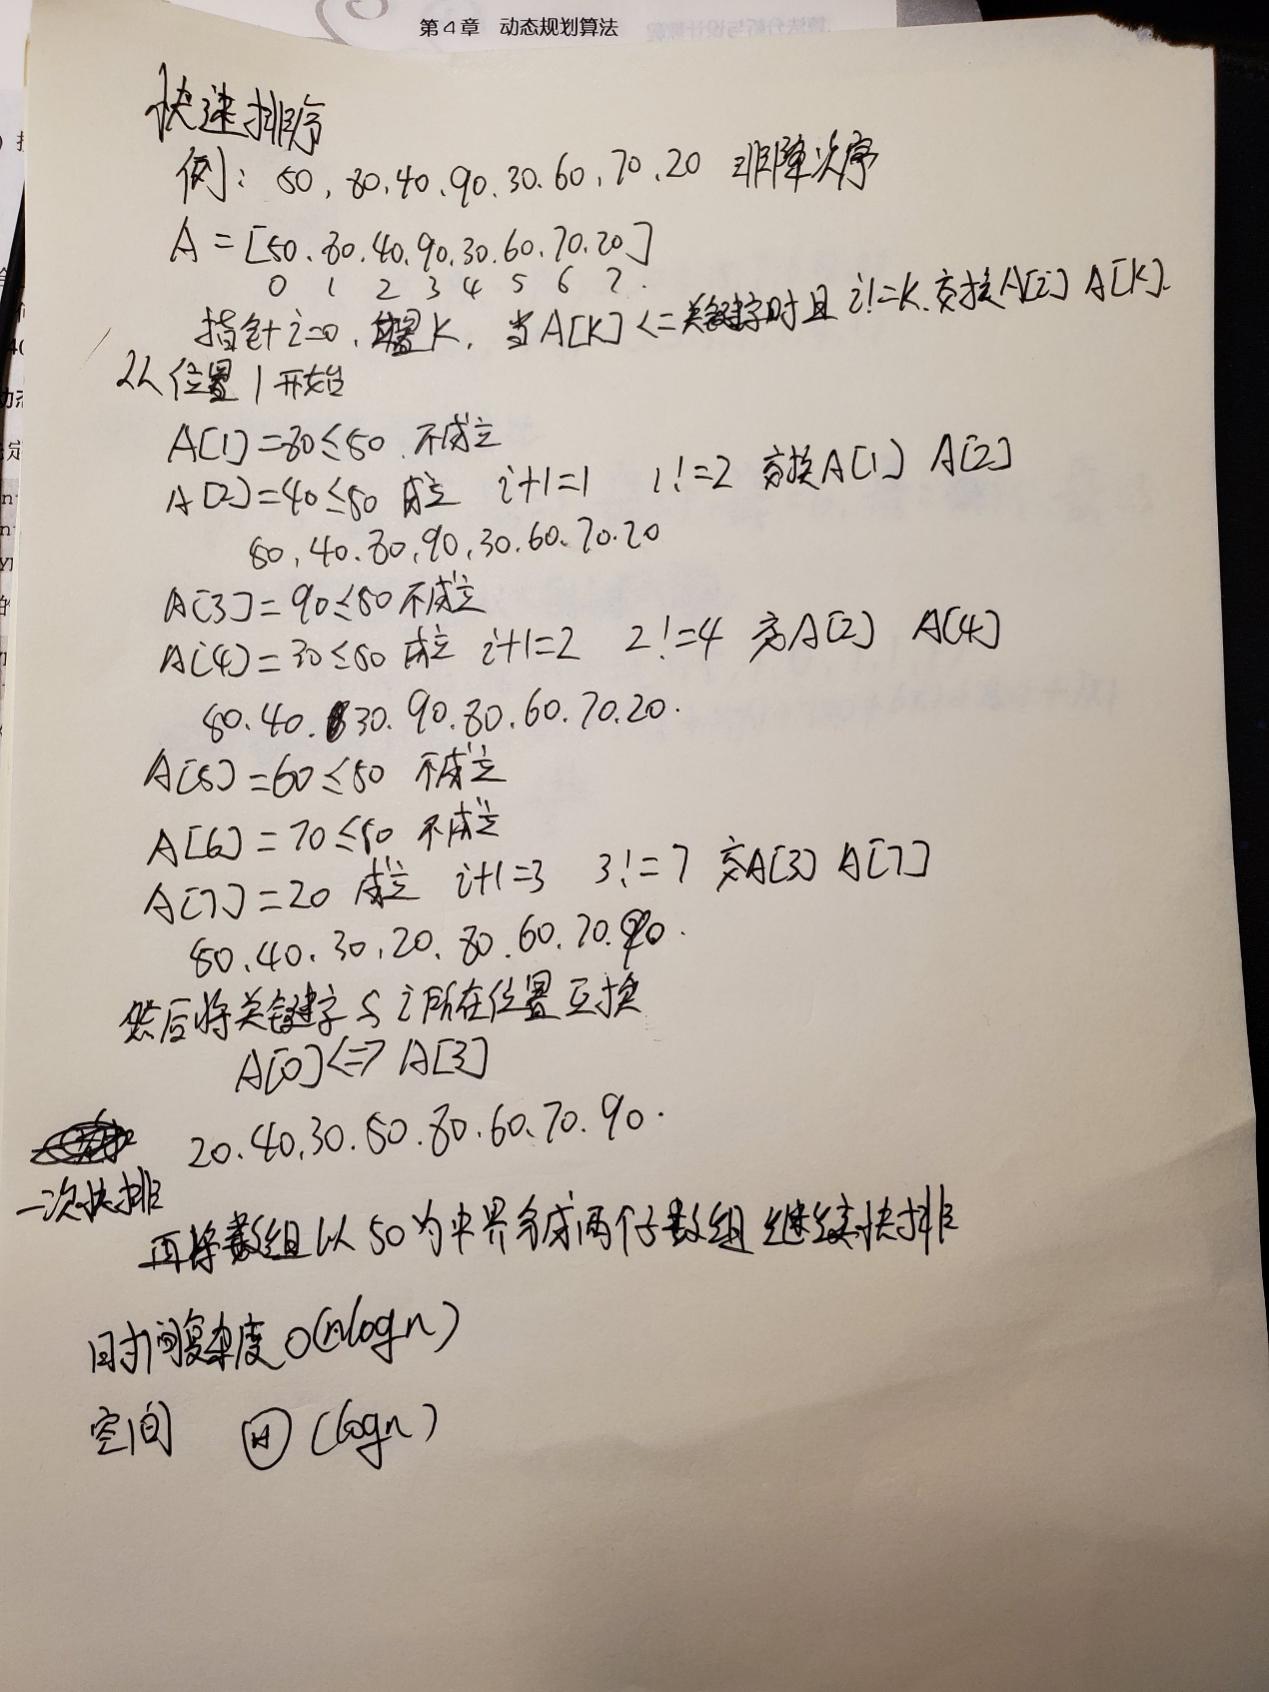 第4章 动态规划算法
快速排序
例: 50, 80, 40, 90, 30, 60, 70, 20 非降次序
A = [50, 80, 40, 90, 30, 60, 70, 20]
0 1 2 3 4 5 6 7.
指针i=0, 位置K, 当A[K]<=关键字时且 i!=K, 交换A[i] A[K].
从位置1开始
A[1]=80≤50 不成立
A[2]=40≤50 成立 i+1=1 1!=2 交换A[1] A[2]
50, 40, 80, 90, 30, 60, 70, 20
A[3]=90≤50 不成立
A[4]=30≤50 成立 i+1=2 2!=4 交A[2] A[4]
50, 40, 30, 90, 80, 60, 70, 20.
A[5]=60≤50 不成立
A[6]=70≤50 不成立
A[7]=20 成立 i+1=3 3!=7 交A[3] A[7]
50, 40, 30, 20, 80, 60, 70, 90.
然后将关键字与i所在位置互换
A[0]<=>A[3]
20, 40, 30, 50, 80, 60, 70, 90.
一次快排
再将数组以50为中界分成两个子数组继续快排
时间复杂度 O(nlogn)
空间 (logn)